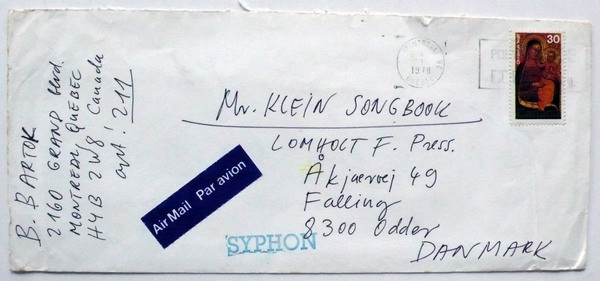 B. BARTOK
2160 GRAND blvd.
MONTREAL QUEBEC
H4B 2W8 Canada
apt: 211
30
1978
Mr. KLEIN SONGBOOK
LOMHOLT F. Press.
Åkjaervej 49
Falling
8300 Odder
DANMARK
Air Mail Par avion
SYPHON